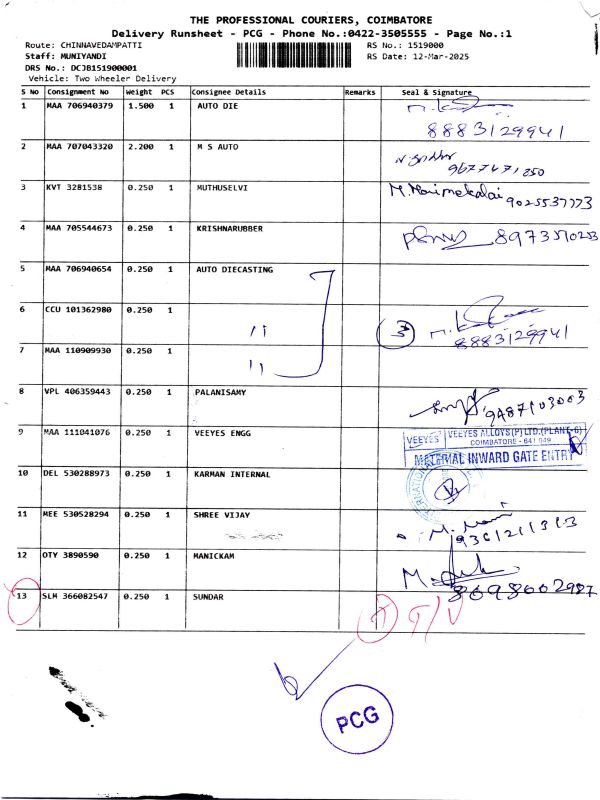 THE PROFESSIONAL COURIERS, COIMBATORE
Delivery Runsheet - PCG - Phone No.:0422-3505555 - Page No.:1
Route: CHINNAVEDAMPATTI RS No.: 1519000
Staff: MUNIYANDI RS Date: 12-Mar-2025
DRS No.: DCJB151900001
Vehicle: Two Wheeler Delivery
S No Consignment No Weight PCS Consignee Details Remarks Seal & Signature
1 MAA 706940379 1.500 1 AUTO DIE
8883129941
2 MAA 707043320 2.200 1 M S AUTO
3 KVT 3281538 0.250 1 MUTHUSELVI M. Manimekalai
4 MAA 705544673 0.250 1 KRISHNARUBBER 8973510253
5 MAA 706940654 0.250 1 AUTO DIECASTING
6 CCU 101362980 0.250 1 " 3
8883129941
7 MAA 110909930 0.250 1 "
8 VPL 406359443 0.250 1 PALANISAMY
9487103003
9 MAA 111041076 0.250 1 VEEYES ENGG VEEYES VEEYES ALLOYS(P)LTD.(PLANT-6)
COIMBATORE - 641 049
MATERIAL INWARD GATE ENTRY
10 DEL 530288973 0.250 1 KARMAN INTERNAL
11 MEE 530528294 0.250 1 SHREE VIJAY M. Mani
9361211313
12 OTY 3890590 0.250 1 MANICKAM
8698602987
13 SLM 366082547 0.250 1 SUNDAR
PCG